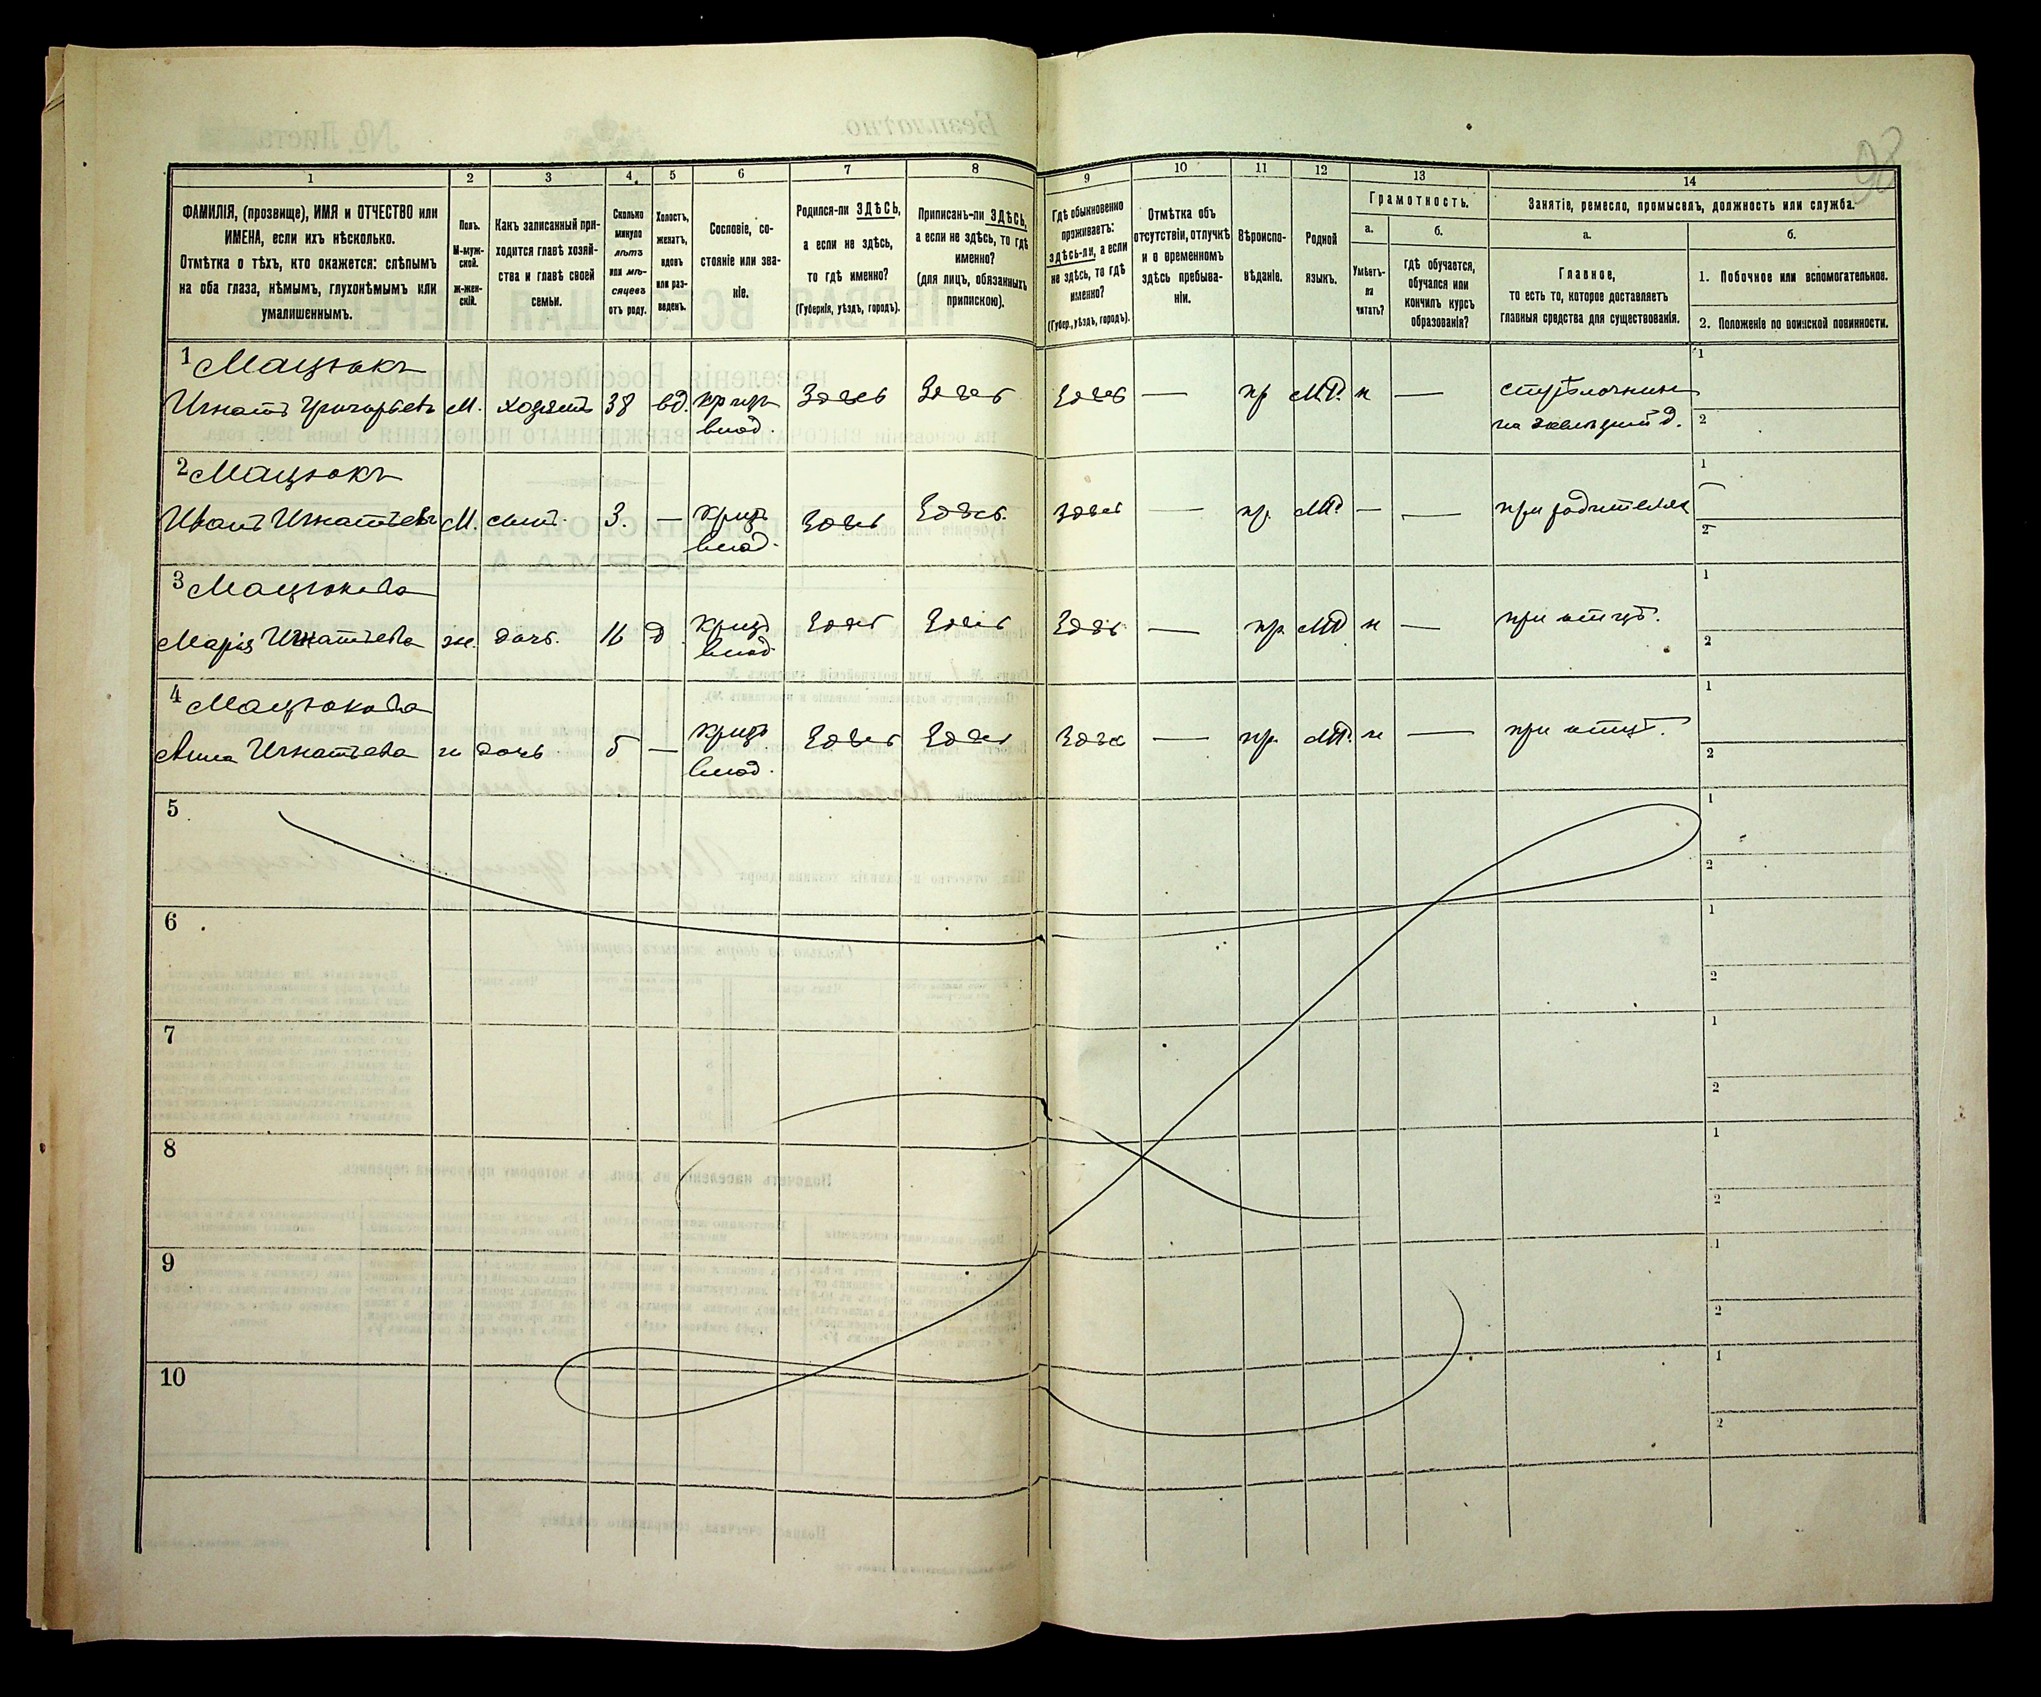 98
1 2 3 4 5 6 7 8 9 10 11 12 13 14
ФАМИЛІЯ, (прозвище), ИМЯ и ОТЧЕСТВО или
ИМЕНА, если ихъ нѣсколько.
Отмѣтка о тѣхъ, кто окажется: слѣпымъ
на оба глаза, нѣмымъ, глухонѣмымъ или
умалишеннымъ.
Полъ.
М-муж-
ской.
ж-жен-
скій.
Какъ записанный при-
ходится главѣ хозяй-
ства и главѣ своей
семьи.
Сколько
минуло
лѣтъ
или мѣ-
сяцевъ
отъ роду.
Холостъ,
женатъ,
вдовъ
или раз-
веденъ.
Сословіе, со-
стояніе или зва-
ніе.
Родился-ли ЗДѢСЬ,
а если не здѣсь,
то гдѣ именно?
(Губернія, уѣздъ, городъ).
Приписанъ-ли ЗДѢСЬ,
а если не здѣсь, то гдѣ
именно?
(для лицъ, обязанныхъ
припискою).
Гдѣ обыкновенно
проживаетъ:
здѣсь-ли, а если
не здѣсь, то гдѣ
именно?
(Губер., уѣздъ, городъ).
Отмѣтка объ
отсутствіи, отлучкѣ
и о временномъ
здѣсь пребыва-
ніи.
Вѣроиспо-
вѣданіе.
Родной
языкъ.
Грамотность.
а.
Умѣетъ-
ли
читать?
б.
гдѣ обучается,
обучался или
кончилъ курсъ
образованія?
Занятіе, ремесло, промыселъ, должность или служба.
а.
Главное,
то есть то, которое доставляетъ
главныя средства для существованія.
б.
1. Побочное или вспомогательное.
2. Положеніе по воинской повинности.
1 Мацюкъ
Игнатъ Григорьевъ М. хозяинъ 38 вд. крест. Здѣсь Здѣсь Здѣсь — пр М.Р. н — стрѣлочникъ 1
влад. на желѣзной д. 2
2 Мацюкъ
Иванъ Игнатьевъ М. сынъ 3. — крест. Здѣсь Здѣсь Здѣсь — пр. МР — — при родителяхъ 1
влад. 2
3 Мацюкова
Марія Игнатьева ж. дочь 16 д крест. Здѣсь Здѣсь Здѣсь — пр. МР н — при отцѣ. 1
влад. 2
4 Мацюкова
Анна Игнатьева ж дочь 5 — крест. Здѣсь Здѣсь Здѣсь — пр. МР. н — при отцѣ. 1
влад. 2
5 1
2
6 1
2
7 1
2
8 1
2
9 1
2
10 1
2